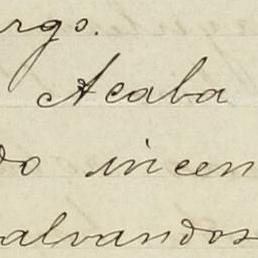 rgo.
Acaba
do incen
alvandos